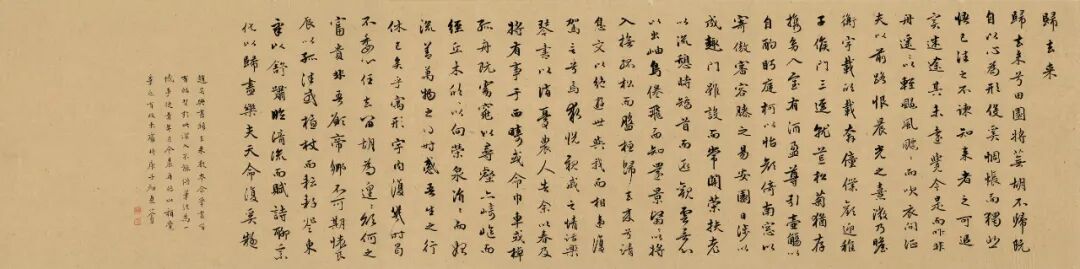 歸去来
歸去来兮田園将蕪胡不歸既
自以心為形役奚惆悵而獨悲
悟已往之不諫知来者之可追
寔迷途其未遠覺今是而昨非
舟遥〻以輕颺風飄〻而吹衣問征
夫以前路恨晨光之熹微乃瞻
衡宇載欣載奔僮僕歡迎稚
子候門三逕就荒松菊猶存
携幼入室有酒盈尊引壺觴以
自酌眄庭柯以怡顔倚南窓以
寄傲審容膝之易安園日涉以
成趣門雖設而常関策扶老
以流憩時矯首而遐觀雲無心
以出岫鳥倦飛而知還景翳〻以将
入撫孤松而盤桓歸去来兮請
息交以絶遊世與我而相遺復
駕言兮焉求悦親戚之情話樂
琴書以消憂農人告余以春及
将有事于西疇或命巾車或棹
孤舟既窈窕以尋壑亦崎嶇而
經丘木欣〻以向榮泉涓〻而始
流善萬物之得時感吾生之行
休已矣乎寓形宇内復幾時曷
不委心任去留胡為遑〻欲何之
富貴非吾願帝鄉不可期懷良
辰以孤往或植杖而耘耔登東
皋以舒嘯臨清流而賦詩聊乘
化以歸盡樂夫天命復奚疑
趙吳興書歸去来數本余學書時